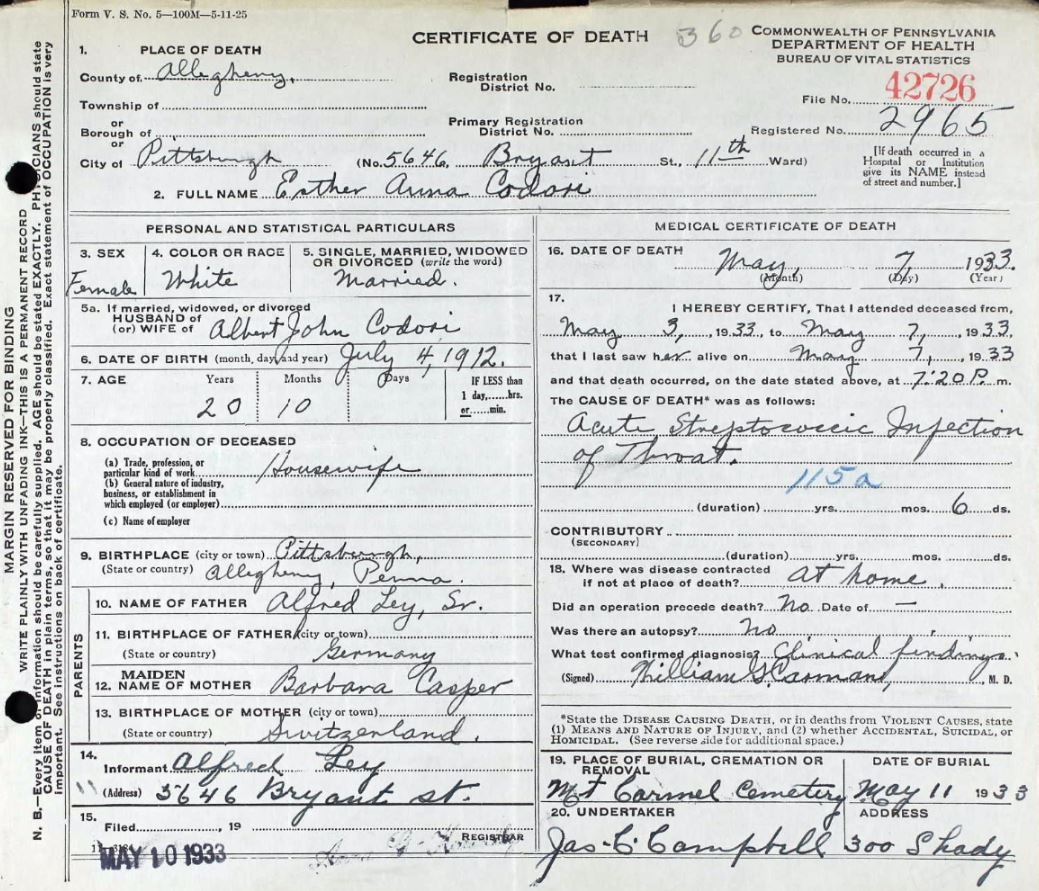 Form V. S. No. 5—100M—5-11-25
CERTIFICATE OF DEATH
360
COMMONWEALTH OF PENNSYLVANIA
DEPARTMENT OF HEALTH
BUREAU OF VITAL STATISTICS
1. PLACE OF DEATH
County of Allegheny,
Township of
or
Borough of
or
City of Pittsburgh
Registration District No.
Primary Registration District No.
(No. 5646, Bryant St., 11th Ward)
File No. 42726
Registered No. 2965
[If death occurred in a
Hospital or Institution
give its NAME instead
of street and number.]
2. FULL NAME Esther Anna Codori
PERSONAL AND STATISTICAL PARTICULARS
3. SEX
Female
4. COLOR OR RACE
White
5. SINGLE, MARRIED, WIDOWED
OR DIVORCED (write the word)
Married.
5a. If married, widowed, or divorced
HUSBAND of
(or) WIFE of Albert John Codori
6. DATE OF BIRTH (month, day, and year) July 4, 1912.
7. AGE Years Months Days
20 10
IF LESS than
1 day,......hrs.
or......min.
8. OCCUPATION OF DECEASED
(a) Trade, profession, or
particular kind of work Housewife
(b) General nature of industry,
business, or establishment in
which employed (or employer)
(c) Name of employer
9. BIRTHPLACE (city or town) Pittsburgh,
(State or country) Allegheny, Penna.
PARENTS
10. NAME OF FATHER Alfred Ley, Sr.
11. BIRTHPLACE OF FATHER (city or town)
(State or country) Germany
12. MAIDEN NAME OF MOTHER Barbara Casper
13. BIRTHPLACE OF MOTHER (city or town)
(State or country) Switzerland.
14.
Informant Alfred Ley
(Address) 5646 Bryant St.
15.
Filed, 19
REGISTRAR
MAY 10 1933
MEDICAL CERTIFICATE OF DEATH
16. DATE OF DEATH May, 7, 1933.
(Month) (Day) (Year)
17.
I HEREBY CERTIFY, That I attended deceased from,
May 3, 1933, to May 7, 1933,
that I last saw her alive on May 7, 1933
and that death occurred, on the date stated above, at 7:20 P. m.
The CAUSE OF DEATH* was as follows:
Acute Streptococcic Infection
of Throat.
115a
(duration) yrs. mos. 6 ds.
CONTRIBUTORY
(SECONDARY)
(duration) yrs. mos. ds.
18. Where was disease contracted
if not at place of death? At home.
Did an operation precede death? No. Date of —
Was there an autopsy? No
What test confirmed diagnosis? Clinical findings.
(Signed) William , M. D.
*State the DISEASE CAUSING DEATH, or in deaths from VIOLENT CAUSES, state
(1) MEANS AND NATURE OF INJURY, and (2) whether ACCIDENTAL, SUICIDAL, or
HOMICIDAL. (See reverse side for additional space.)
19. PLACE OF BURIAL, CREMATION OR
REMOVAL
Mt Carmel Cemetery
DATE OF BURIAL
May 11 1933
20. UNDERTAKER
Jas. C. Campbell
ADDRESS
300 Shady
MARGIN RESERVED FOR BINDING
WRITE PLAINLY WITH UNFADING INK—THIS IS A PERMANENT RECORD
N. B.—Every item of information should be carefully supplied. AGE should be stated EXACTLY. PHYSICIANS should state
CAUSE OF DEATH in plain terms, so that it may be properly classified. Exact statement of OCCUPATION is very
important. See instructions on back of certificate.